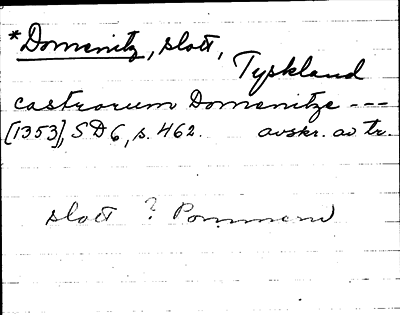 *Domenitz, slott,
Tyskland
castrorum Domenitze ---
[1353], SD 6, s. 462. avskr. av tr.
slott ? Pommern